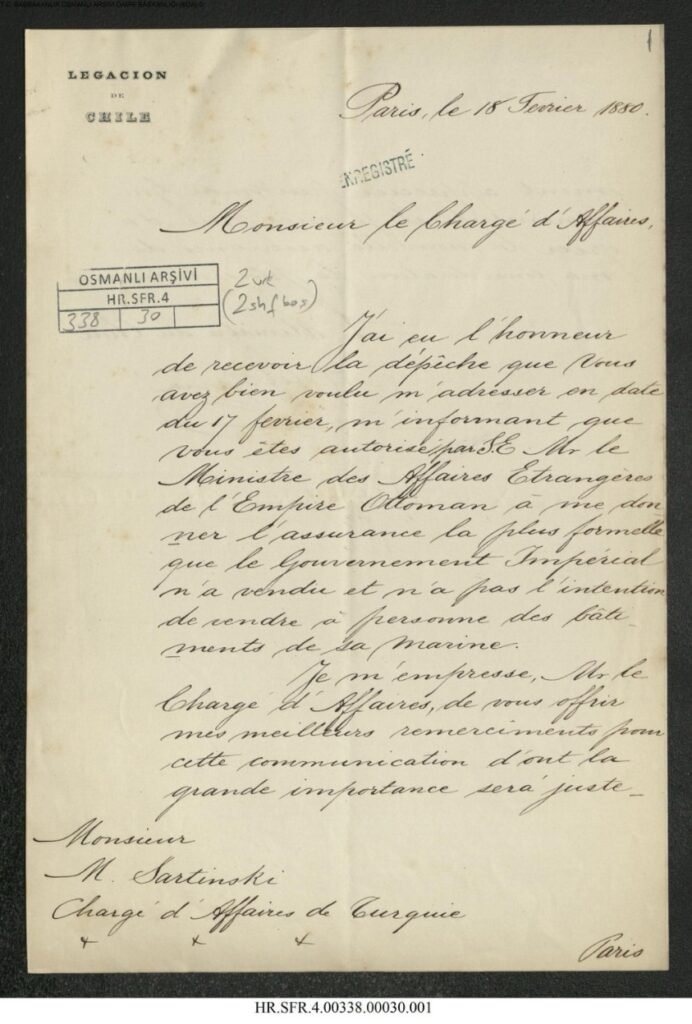 T.C. BAŞBAKANLIK OSMANLI ARŞİVİ DAİRE BAŞKANLIĞI (BOA)
1
LEGACION
DE
CHILE
Paris, le 18 Fevrier 1880.
ENREGISTRÉ
Monsieur le Chargé d'Affaires,
OSMANLI ARŞİVİ
HR.SFR.4
338 30
2 vrk
(2 shf boş)
J'ai eu l'honneur
de recevoir la dépêche que Vous
avez bien voulu m'adresser en date
du 17 fevrier, m'informant que
vous êtes autorisé par S.E Mr le
Ministre des Affaires Etrangères
de l'Empire Ottoman à me don-
ner l'assurance la plus formelle
que le Gouvernement Impérial
n'a vendu et n'a pas l'intention
de vendre à personne des bâti-
ments de sa marine.
Je m'empresse, Mr le
Chargé d'Affaires, de vous offrir
mes meilleurs remerciments pour
cette communication d'ont la
grande importance será juste-
Monsieur
M. Sartinski
Chargé d'Affaires de Turquie
Paris
HR.SFR.4.00338.00030.001